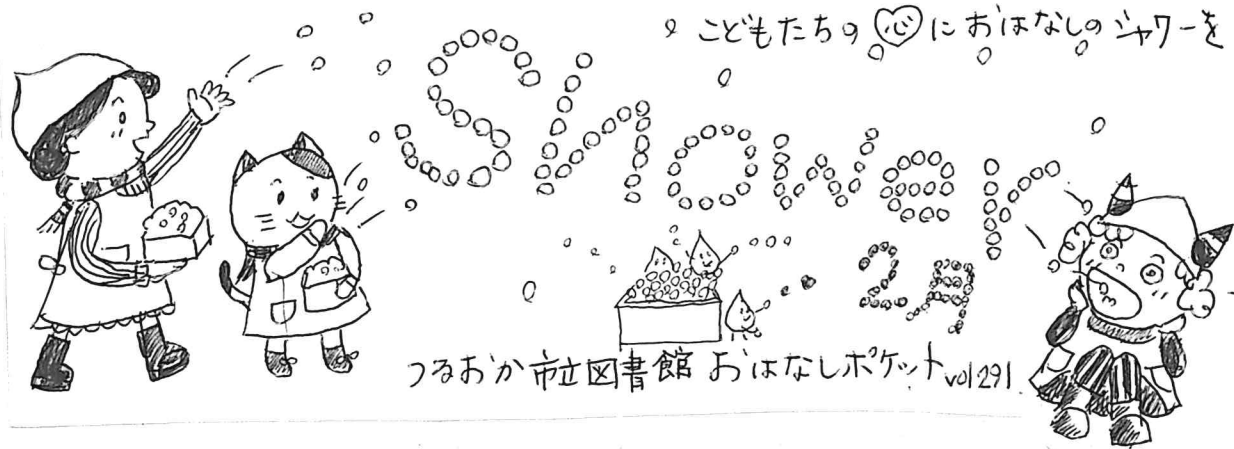 こどもたちの心におはなしのシャワーを
Shower
2月
つるおか市立図書館 おはなしポケット vol291